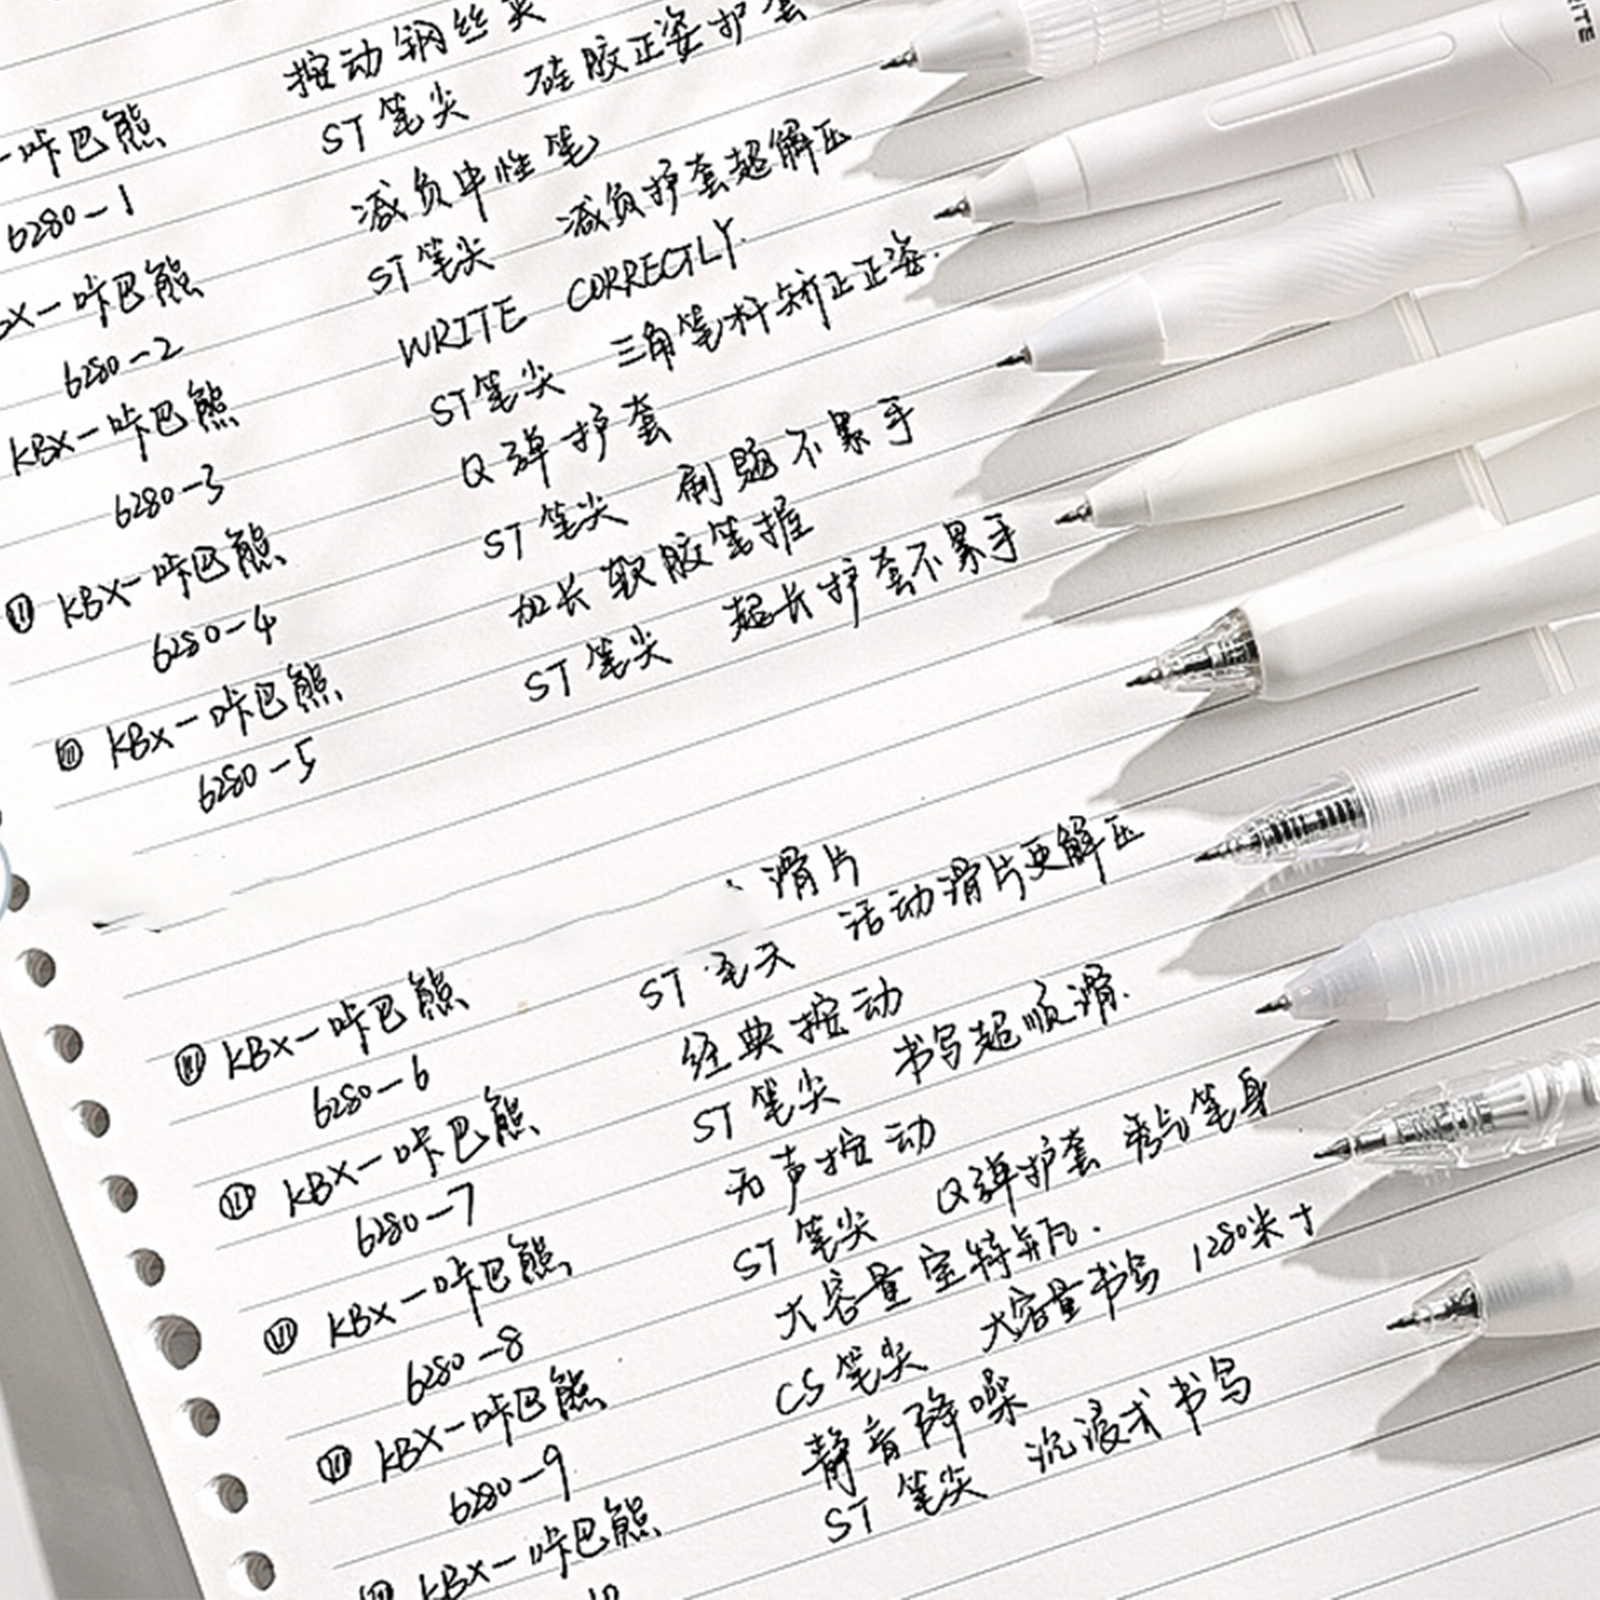 按动钢丝夹
-咔巴熊 ST笔尖 硅胶正姿护套
6280-1 减负中性笔
-咔巴熊 ST笔尖 减负护套超解压
6280-2 WRITE CORRECTLY.
KBX-咔巴熊 ST笔尖 三角笔杆矫正正姿.
6280-3 Q弹护套
KBX-咔巴熊 ST笔尖 刷题不累手
6280-4 加长软胶笔握
KBX-咔巴熊 ST笔尖 超长护套不累手
6280-5
滑片
KBX-咔巴熊 ST 活动滑片更解压
6280-6 经典按动
KBX-咔巴熊 ST笔尖 书写超顺滑.
6280-7 无声按动
KBX-咔巴熊 ST笔尖 Q弹护套 笔身
6280-8 大容量宝特瓶.
KBX-咔巴熊 CS笔尖 大容量书写 1280米寸
6280-9 静音降噪
KBX-咔巴熊 ST笔尖 沉浸式书写
10
RITE